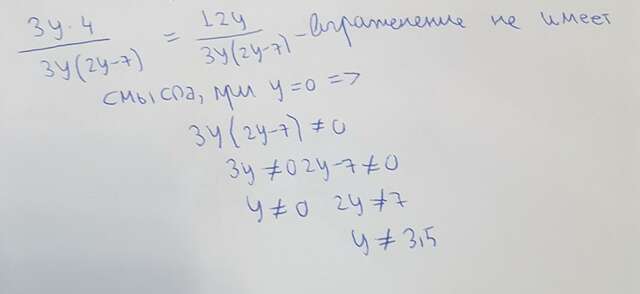 3y·4/3y(2y-7) = 12y/3y(2y-7) - выражение не имеет
смысла, при y=0 =>
3y(2y-7)≠0
3y≠0 2y-7≠0
y≠0 2y≠7
y≠3,5